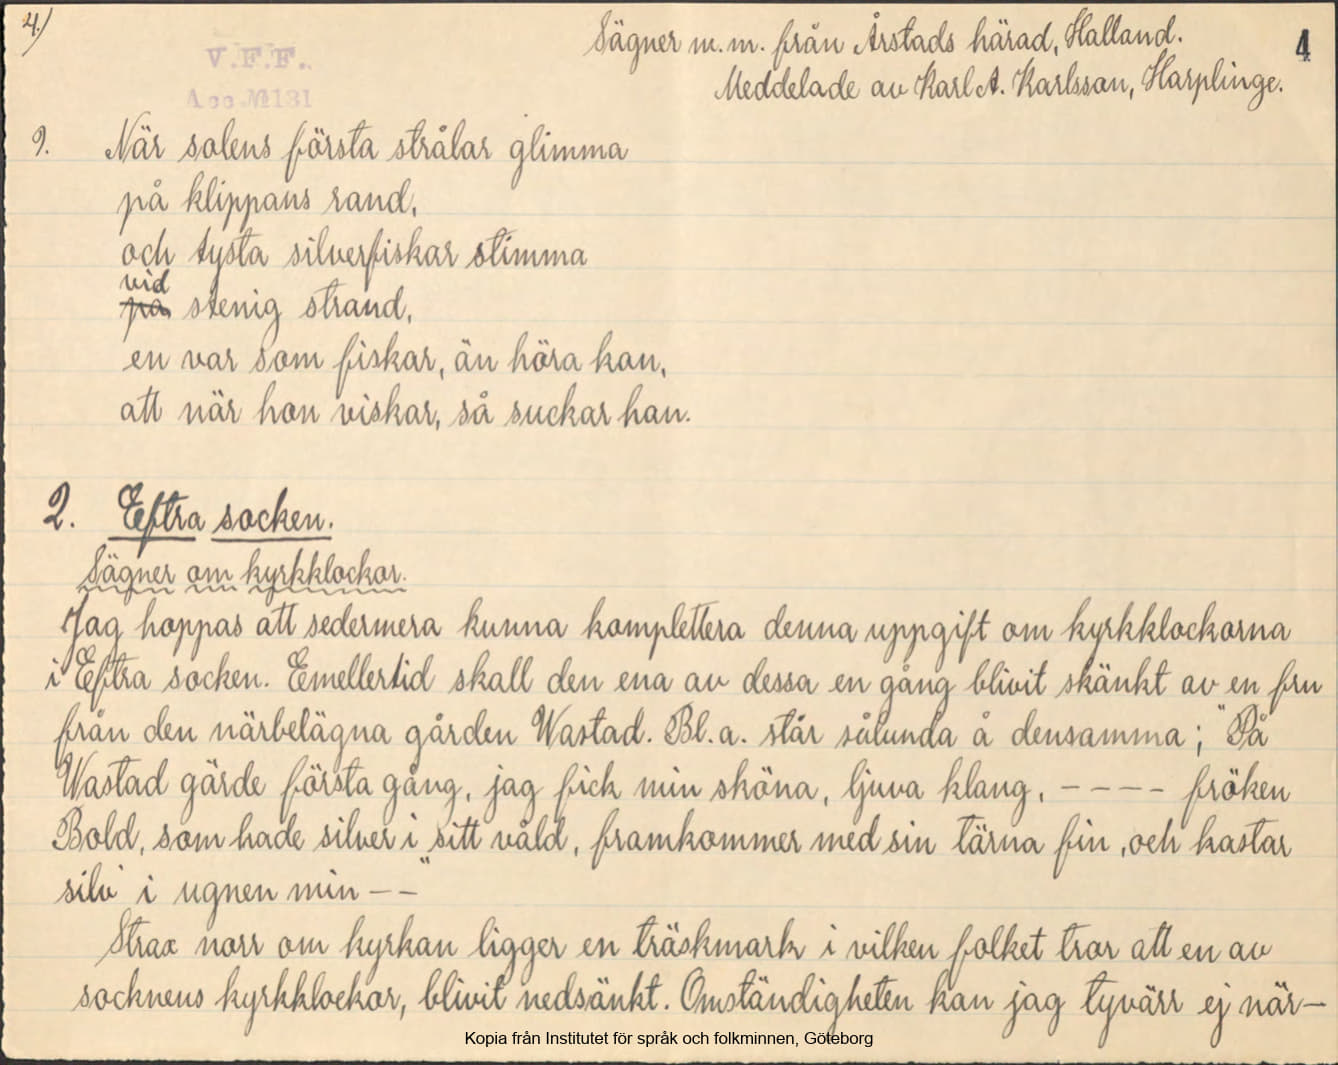 4.)
Sägner m.m. från Årstads härad, Halland.
4
V.F.F.
Meddelade av Karl A. Karlsson, Harplinge.
Acc. № 131
9. När solens första strålar glimma
på klippans rand,
och tysta silverfiskar stimma
vid
på stenig strand,
en var som fiskar, än höra kan,
att när hon viskar, så suckar han.
2. Eftra socken.
Sägner om kyrkklockor.
Jag hoppas att sedermera kunna komplettera denna uppgift om kyrkklockorna
i Eftra socken. Emellertid skall den ena av dessa en gång blivit skänkt av en fru
från den närbelägna gården Wastad. Bl.a. står sålunda å densamma; "På
Wastad gärde första gång, jag fick min sköna, ljuva klang, - - - - fröken
Bold, som hade silver i sitt våld, framkommer med sin tärna fin, och kastar
silv' i ugnen min - - "
Strax norr om kyrkan ligger en träskmark i vilken folket tror att en av
socknens kyrkklockor, blivit nedsänkt. Omständigheten kan jag tyvärr ej när-
Kopia från Institutet för språk och folkminnen, Göteborg